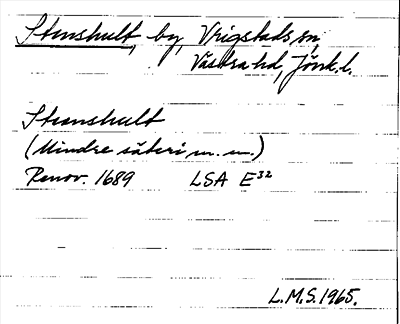 Stenshult, by, Vrigstads sn,
Västra hd, Jönk. l.
Stenshult
(Mindre säteri m. m.)
Renov. 1689 LSA E32
L.M.S. 1965.